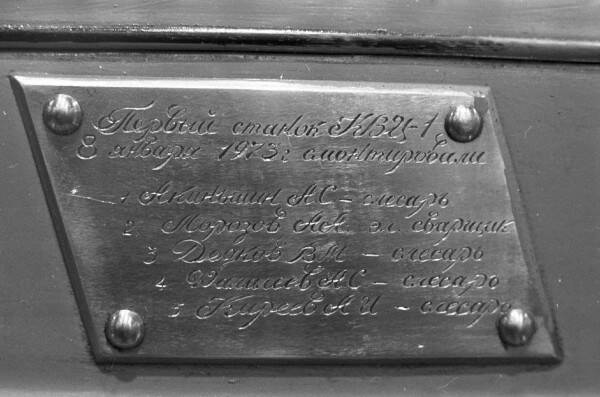 Первый станок КВЦ-1
8 января 1973г смонтировали
1 Акиньшин АС - слесарь
2 Морозов АА. эл. сварщик
3 Дедков ВМ - слесарь
4 АС - слесарь
5 Киреев АИ - слесарь